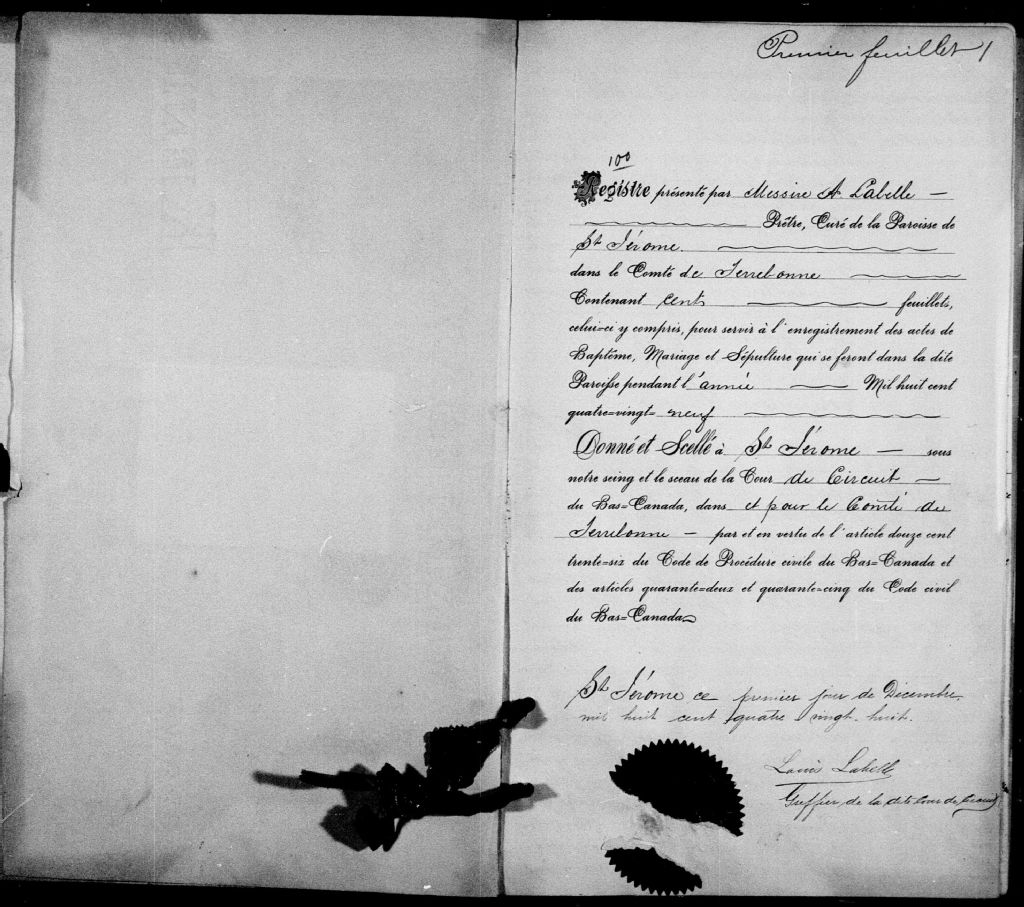 Premier feuillet 1
100
Registre présenté par Messire A Labelle —
Prêtre, Curé de la Paroisse de
St Jérome.
dans le Comté de Terrebonne
Contenant cent feuillets,
celui=ci y compris, pour servir à l'enregistrement des actes de
Baptême, Mariage et Sépulture qui se feront dans la dite
Paroisse pendant l'année Mil huit cent
quatre=vingt= neuf
Donné et Scellé à St Jérome — sous
notre seing et le sceau de la Cour de Circuit —
du Bas=Canada, dans et pour le Comté de
Terrebonne — par et en vertu de l'article douze cent
trente=six du Code de Procédure civile du Bas=Canada et
des articles quarante=deux et quarante=cinq du Code civil
du Bas=Canada
St Jérome ce premier jour de Décembre
mil huit cent quatre vingt huit.
Louis Labelle
Greffier de la dite Cour de Circuit